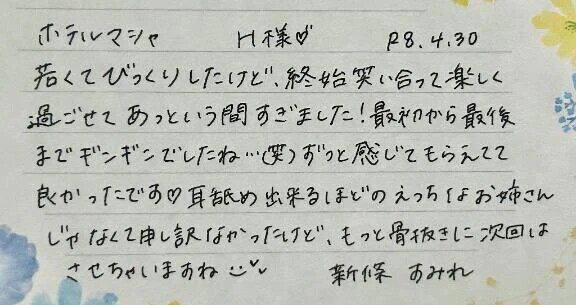 ホテルマシャ　H様♡　R8.4.30
若くてびっくりしたけど、終始笑い合って楽しく
過ごせてあっという間すぎました！最初から最後
までギンギンでしたね…(笑)ずっと感じてもらえてて
良かったです♡耳舐め出来るほどのえっちなお姉さん
じゃなくて申し訳なかったけど、もっと骨抜きに次回は
させちゃいますね　新條　すみれ